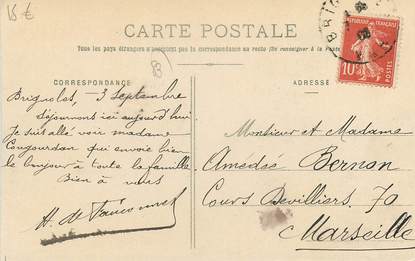 15 €
CARTE POSTALE
Tous les pays étrangers n'acceptent pas la correspondance au recto (Se renseigner à la Poste
CORRESPONDANCE
ADRESSE
BRIG
10
POSTES
Brignoles, 3 Septembre
Séjournons ici aujourd'hui
Je suis allé voir madame
Cougourdan qui envoie bien
le bonjour à toute la famille
Bien à vous
Monsieur et Madame
Amédée Bernon
Cours Devilliers, 70
Marseille